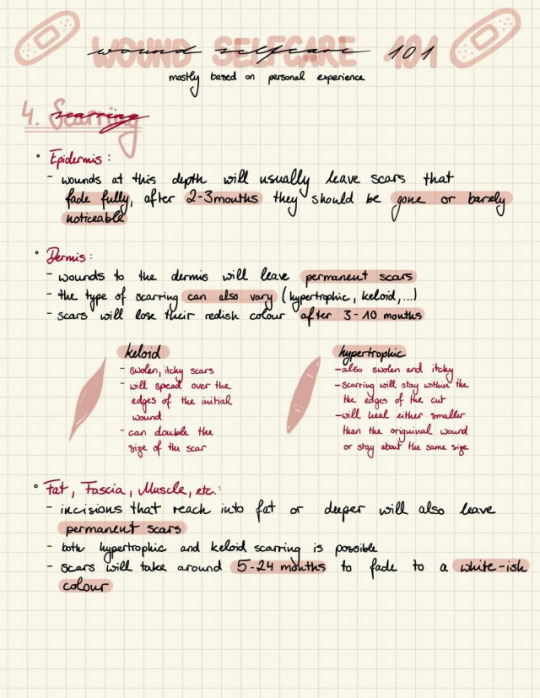 WOUND SELFCARE 101
wound selfcare 101
mostly based on personal experience
4. Scarring
scarring
• Epidermis:
- wounds at this depth will usually leave scars that
fade fully, after 2-3 mouths they should be gone or barely
noticeable
• Dermis:
- wounds to the dermis will leave permanent scars
- the type of scarring can also vary (hypertrophic, keloid,...)
- scars will lose their redish colour after 3-10 mouths
keloid
- swolen, itchy scars
- will spead over the
edges of the initial
wound
- can double the
size of the scar
hypertrophic
- also swolen and itchy
- scarring will stay within the
the edges of the cut
- will heal either smaller
than the original wound
or stay about the same size
• Fat, Fascia, Muscle, etc.:
- incisions that reach into fat or deeper will also leave
permanent scars
- both hypertrophic and keloid scarring is possible
- scars will take around 5-24 months to fade to a white-ish
colour